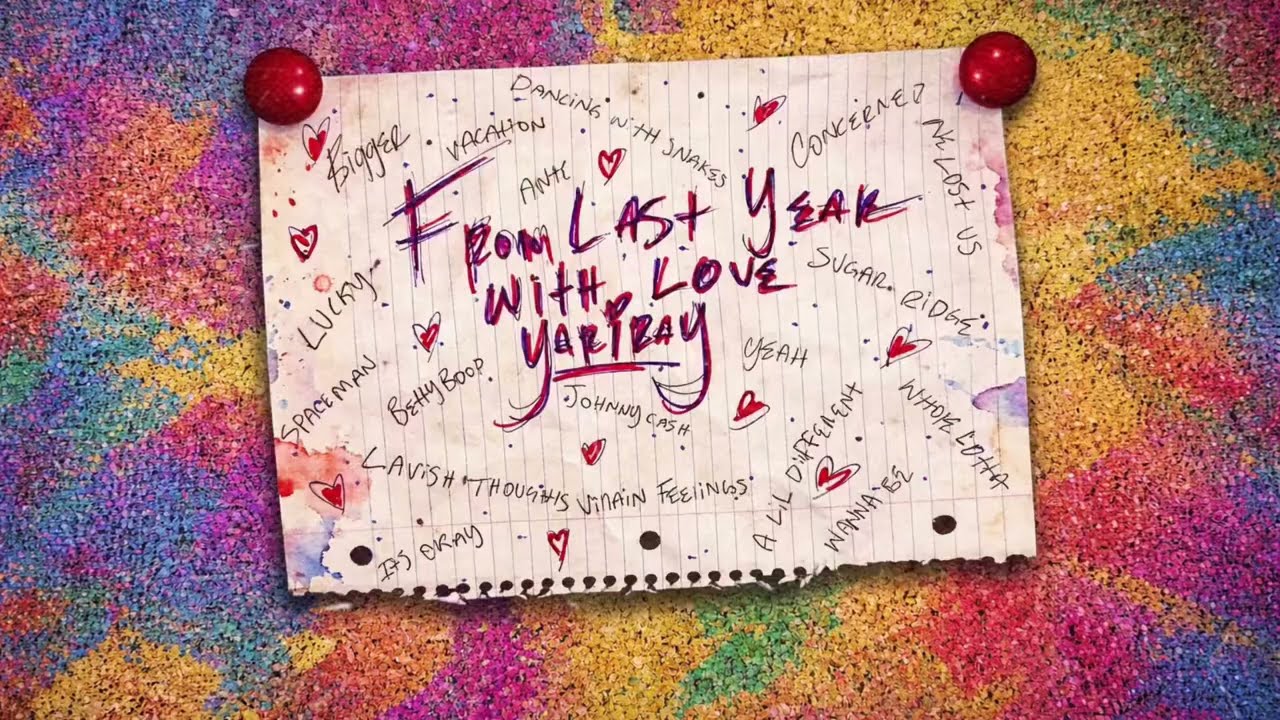 Dancing with Snakes
Bigger
Vacation
Ante
Concerned
From Last Year
With Love
YARIRAY
Lucky
Sugar Ridge
Spaceman
Betty Boop
Johnny Cash
Yeah
Whole Lotta
Lavish Thoughts Villain Feelings
A Lil Different
Wanna Be
Its Okay
Lost Us